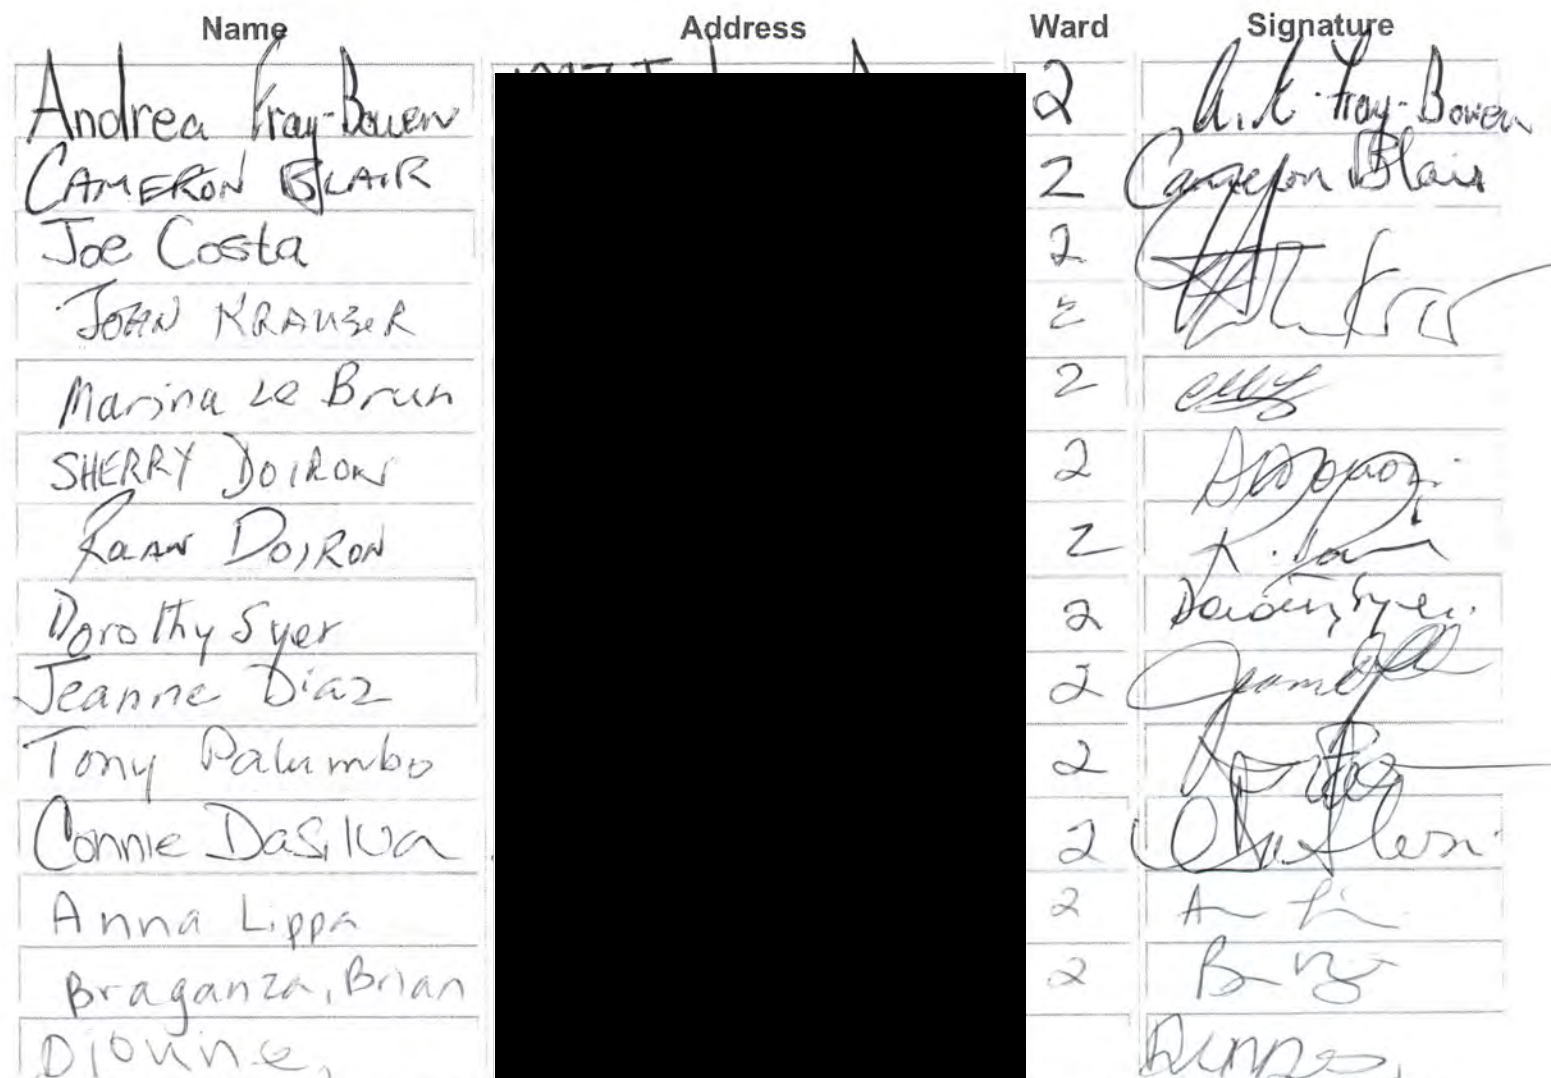 Name Address Ward Signature
Andrea Fray-Bowen 2 A. A. Fray-Bowen
CAMERON BLAIR 2 Cameron Blair
Joe Costa 2
JOHN KRAUZER 2
Marina Le Brun 2
SHERRY DOIRON 2
DOIRON 2 K.
Dorothy Syer 2 Dorothy Syer.
Jeanne Diaz 2
Tony Palumbo 2
Connie DaSilva 2
Anna Lippa 2
Braganza, Brian 2
Dionne,